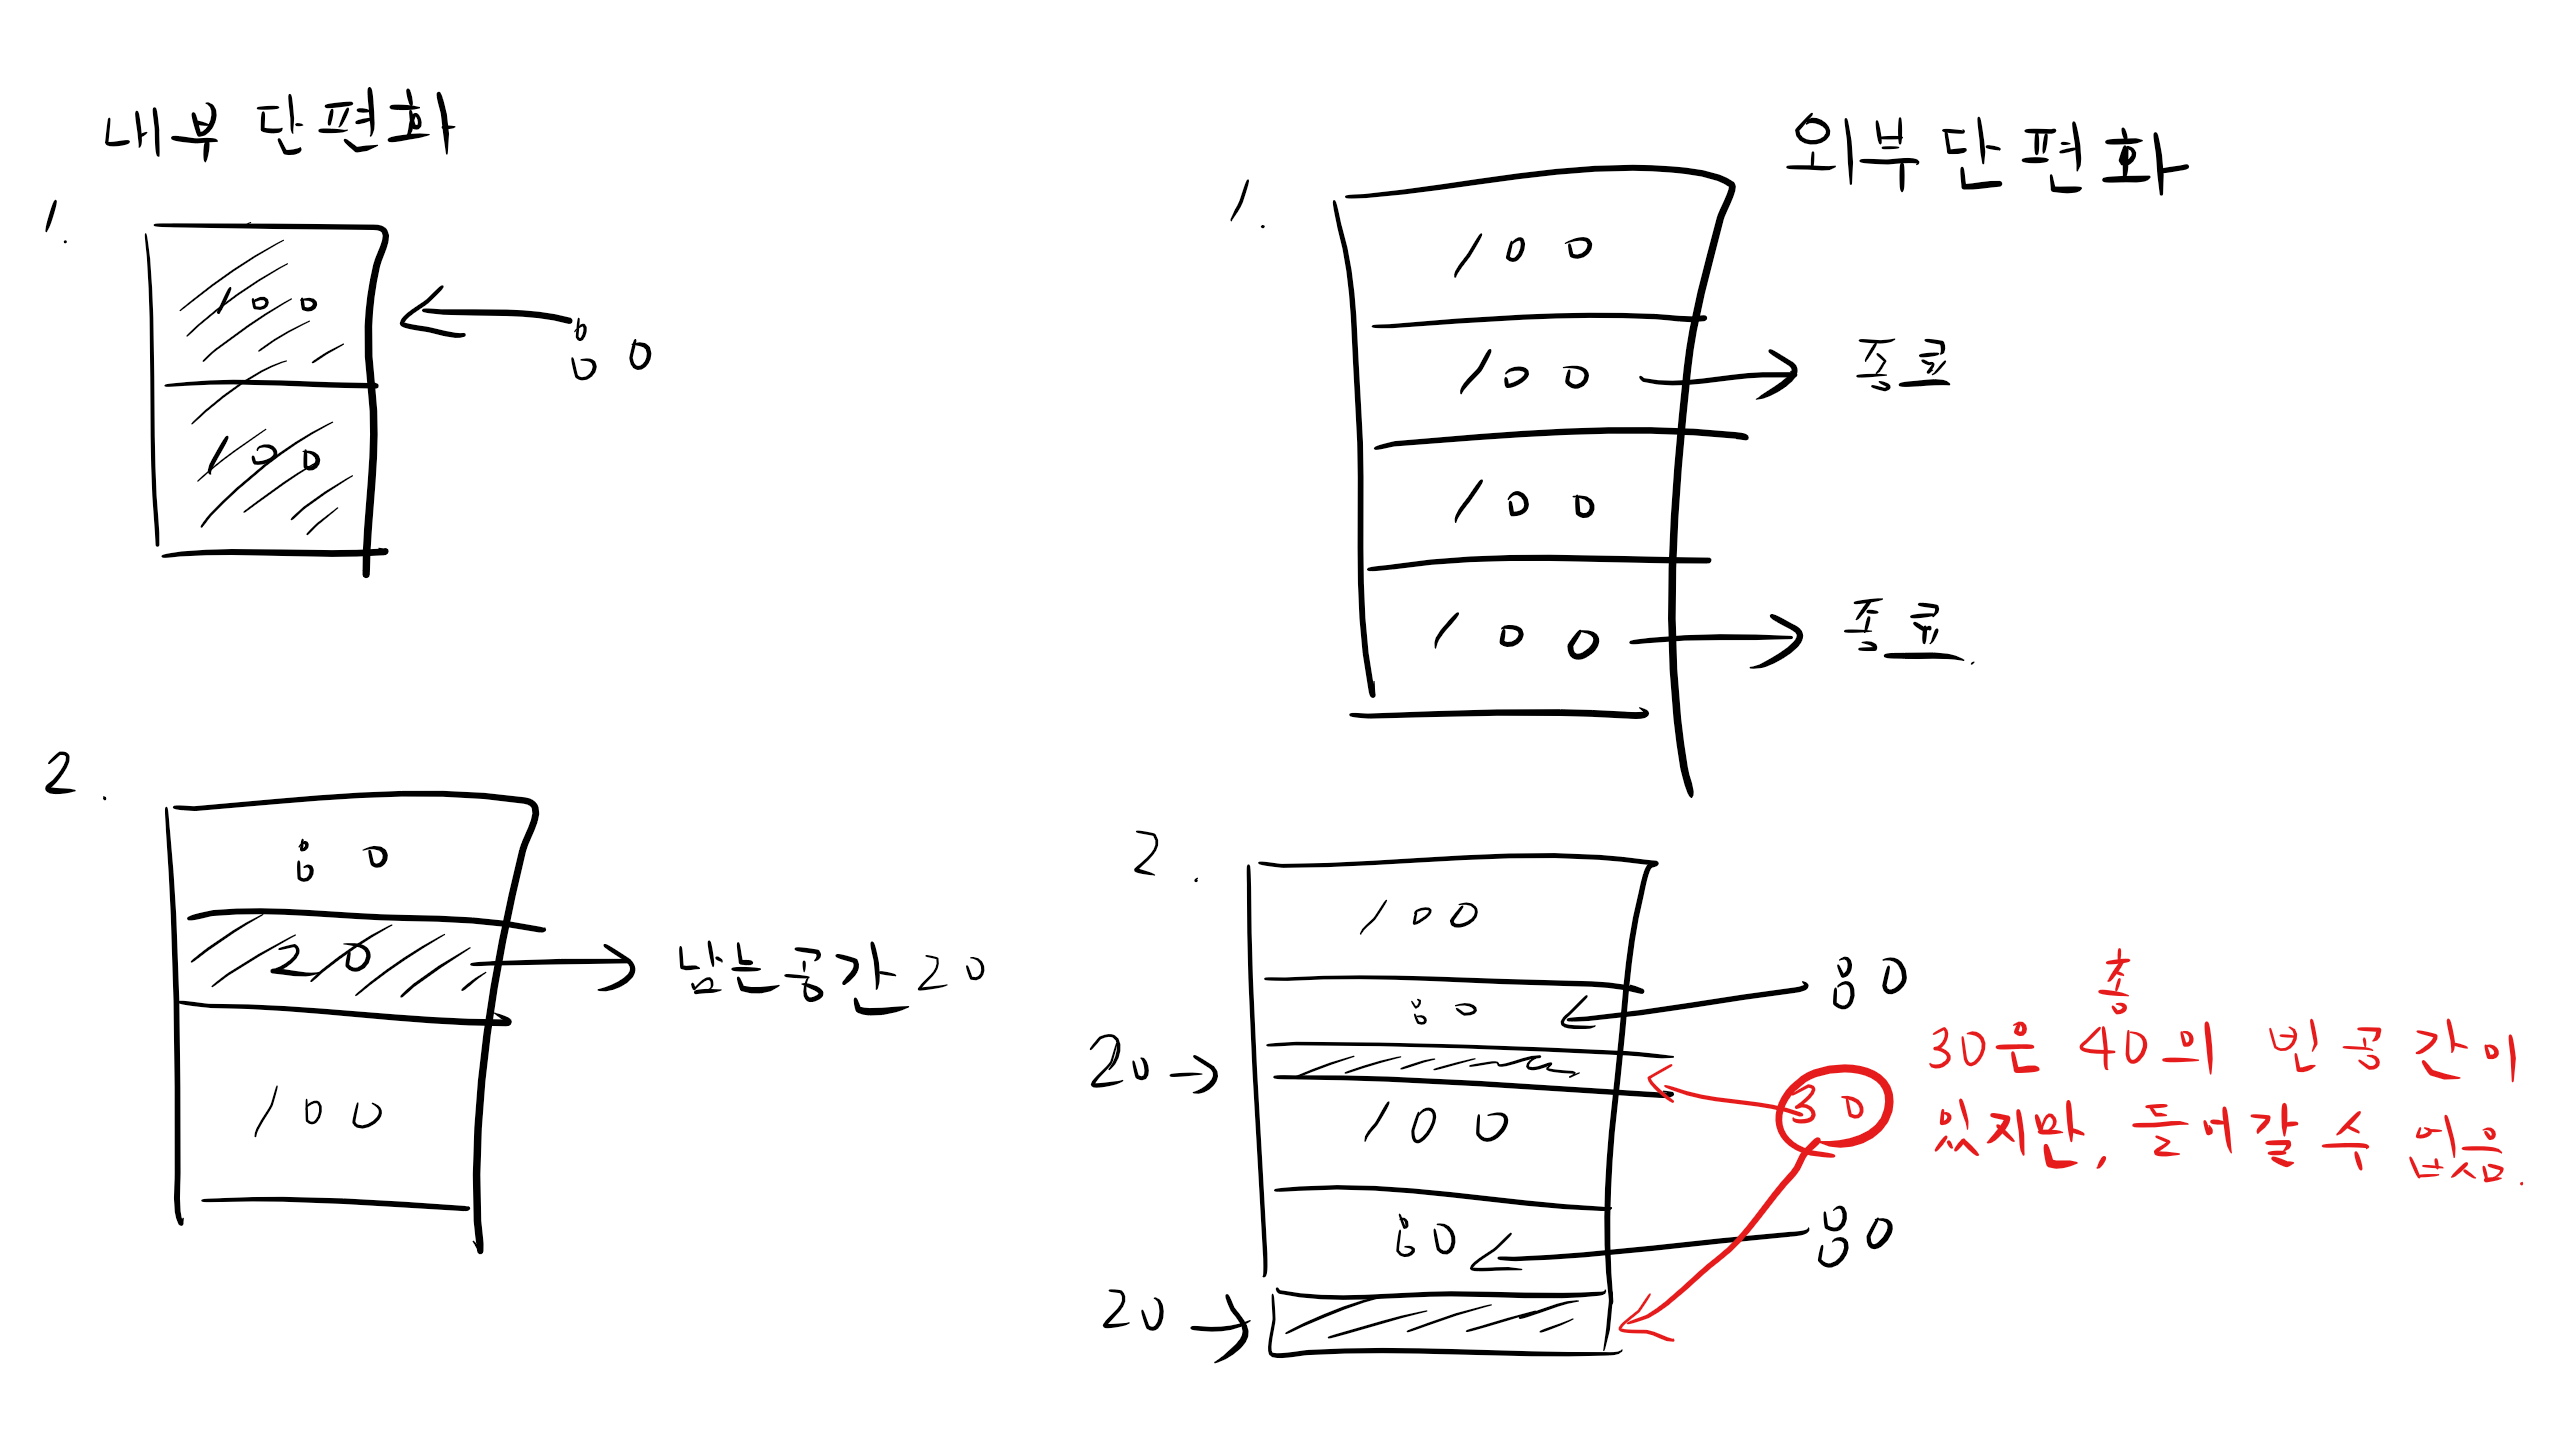 내부 단편화
1.
100
80
100
2.
80
20
남는공간 20
100
외부 단편화
1.
100
100
종료
100
100
종료.
2.
100
80
80
20
100
30
80
80
20
총
30은 40의 빈공간이
있지만, 들어갈 수 없음.